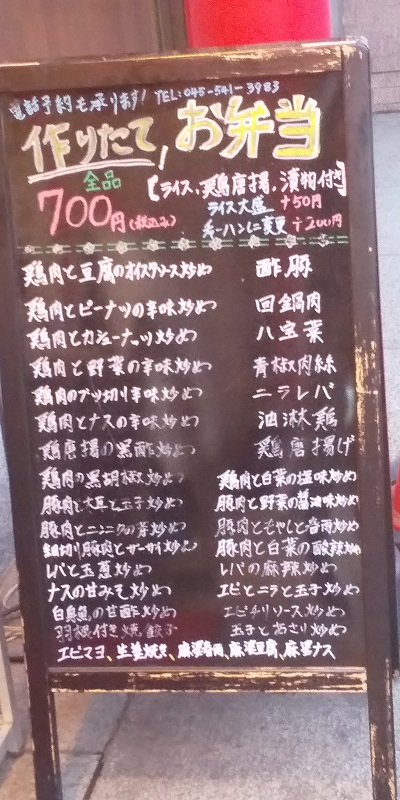 電話予約も承ります! TEL:045-541-3983
作りたて! お弁当
全品
700円(税込み)
【ライス、鶏唐揚、漬物付き】
ライス大盛 +50円
チャーハンに変更 +200円
鶏肉と豆腐のオイスターソース炒め
鶏肉とピーナッツの辛味炒め
鶏肉とカシューナッツ炒め
鶏肉と野菜の辛味炒め
鶏肉のブツ切り辛味炒め
鶏肉とナスの辛味炒め
鶏唐揚の黒酢炒め
鶏肉の黒胡椒炒め
豚肉と木耳と玉子炒め
豚肉とニンニクの芽炒め
細切り豚肉とザーサイ炒め
レバと玉葱炒め
ナスの甘みそ炒め
白身魚の甘酢炒め
羽根付き焼餃子
酢豚
回鍋肉
八宝菜
青椒肉絲
ニラレバ
油淋鶏
鶏唐揚げ
鶏肉と白菜の塩味炒め
豚肉と野菜の醤油味炒め
豚肉ともやしと春雨炒め
豚肉と白菜の酸辣炒め
レバの麻辣炒め
エビとニラと玉子炒め
エビチリソース炒め
玉子とあさり炒め
エビマヨ、生姜焼き、麻婆春雨、麻婆豆腐、麻婆ナス